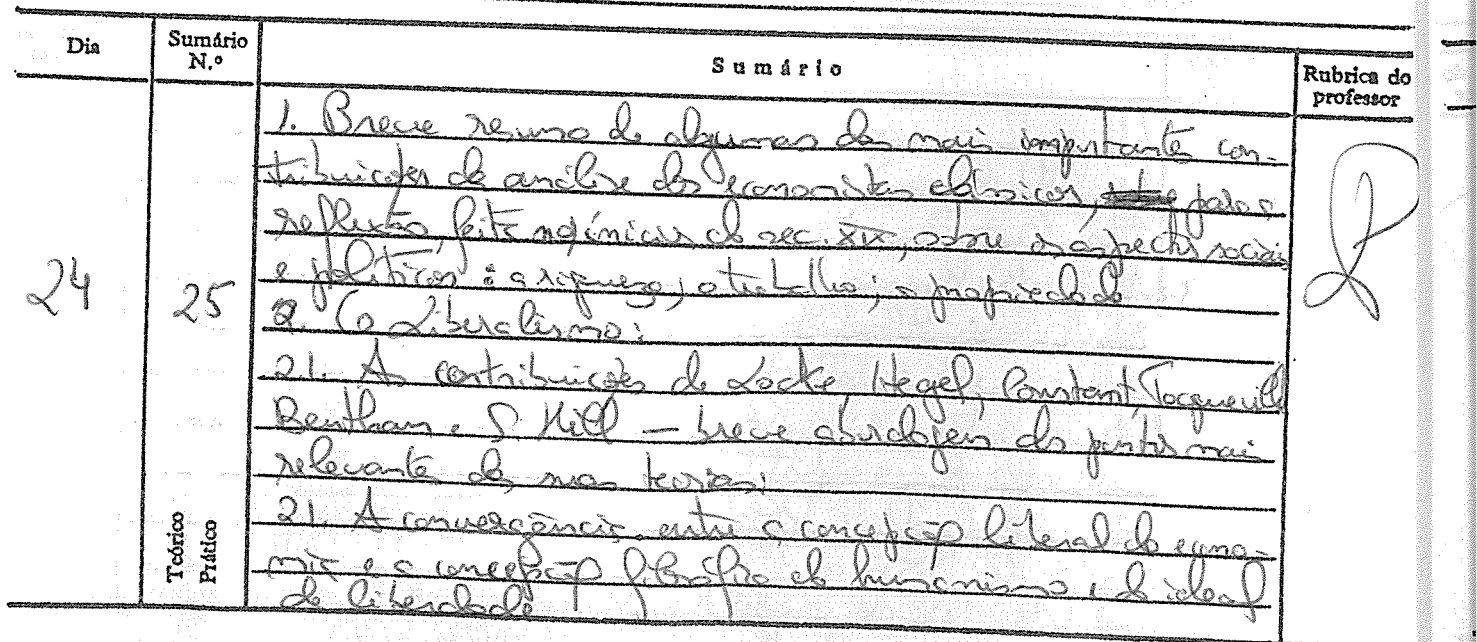 Dia
Sumário N.º
Sumário
Rubrica do professor
24
25
Teórico
Prático
1. Breve resumo de algumas das mais importantes con-
tribuições da análise dos economistas clássicos, para a
reflexão, feita no início do sec. XIX, sobre os aspectos sociais
e políticos: a riqueza; o trabalho; a propriedade
2. O Liberalismo:
2.1. As contribuições de Locke, Hegel, Constant, Tocqueville
Bentham e S. Mill – breve abordagem dos pontos mais
relevantes das suas teorias;
21. A convergência entre a concepção liberal da econo-
mia e a concepção filosófica do humanismo e do ideal
de liberdade